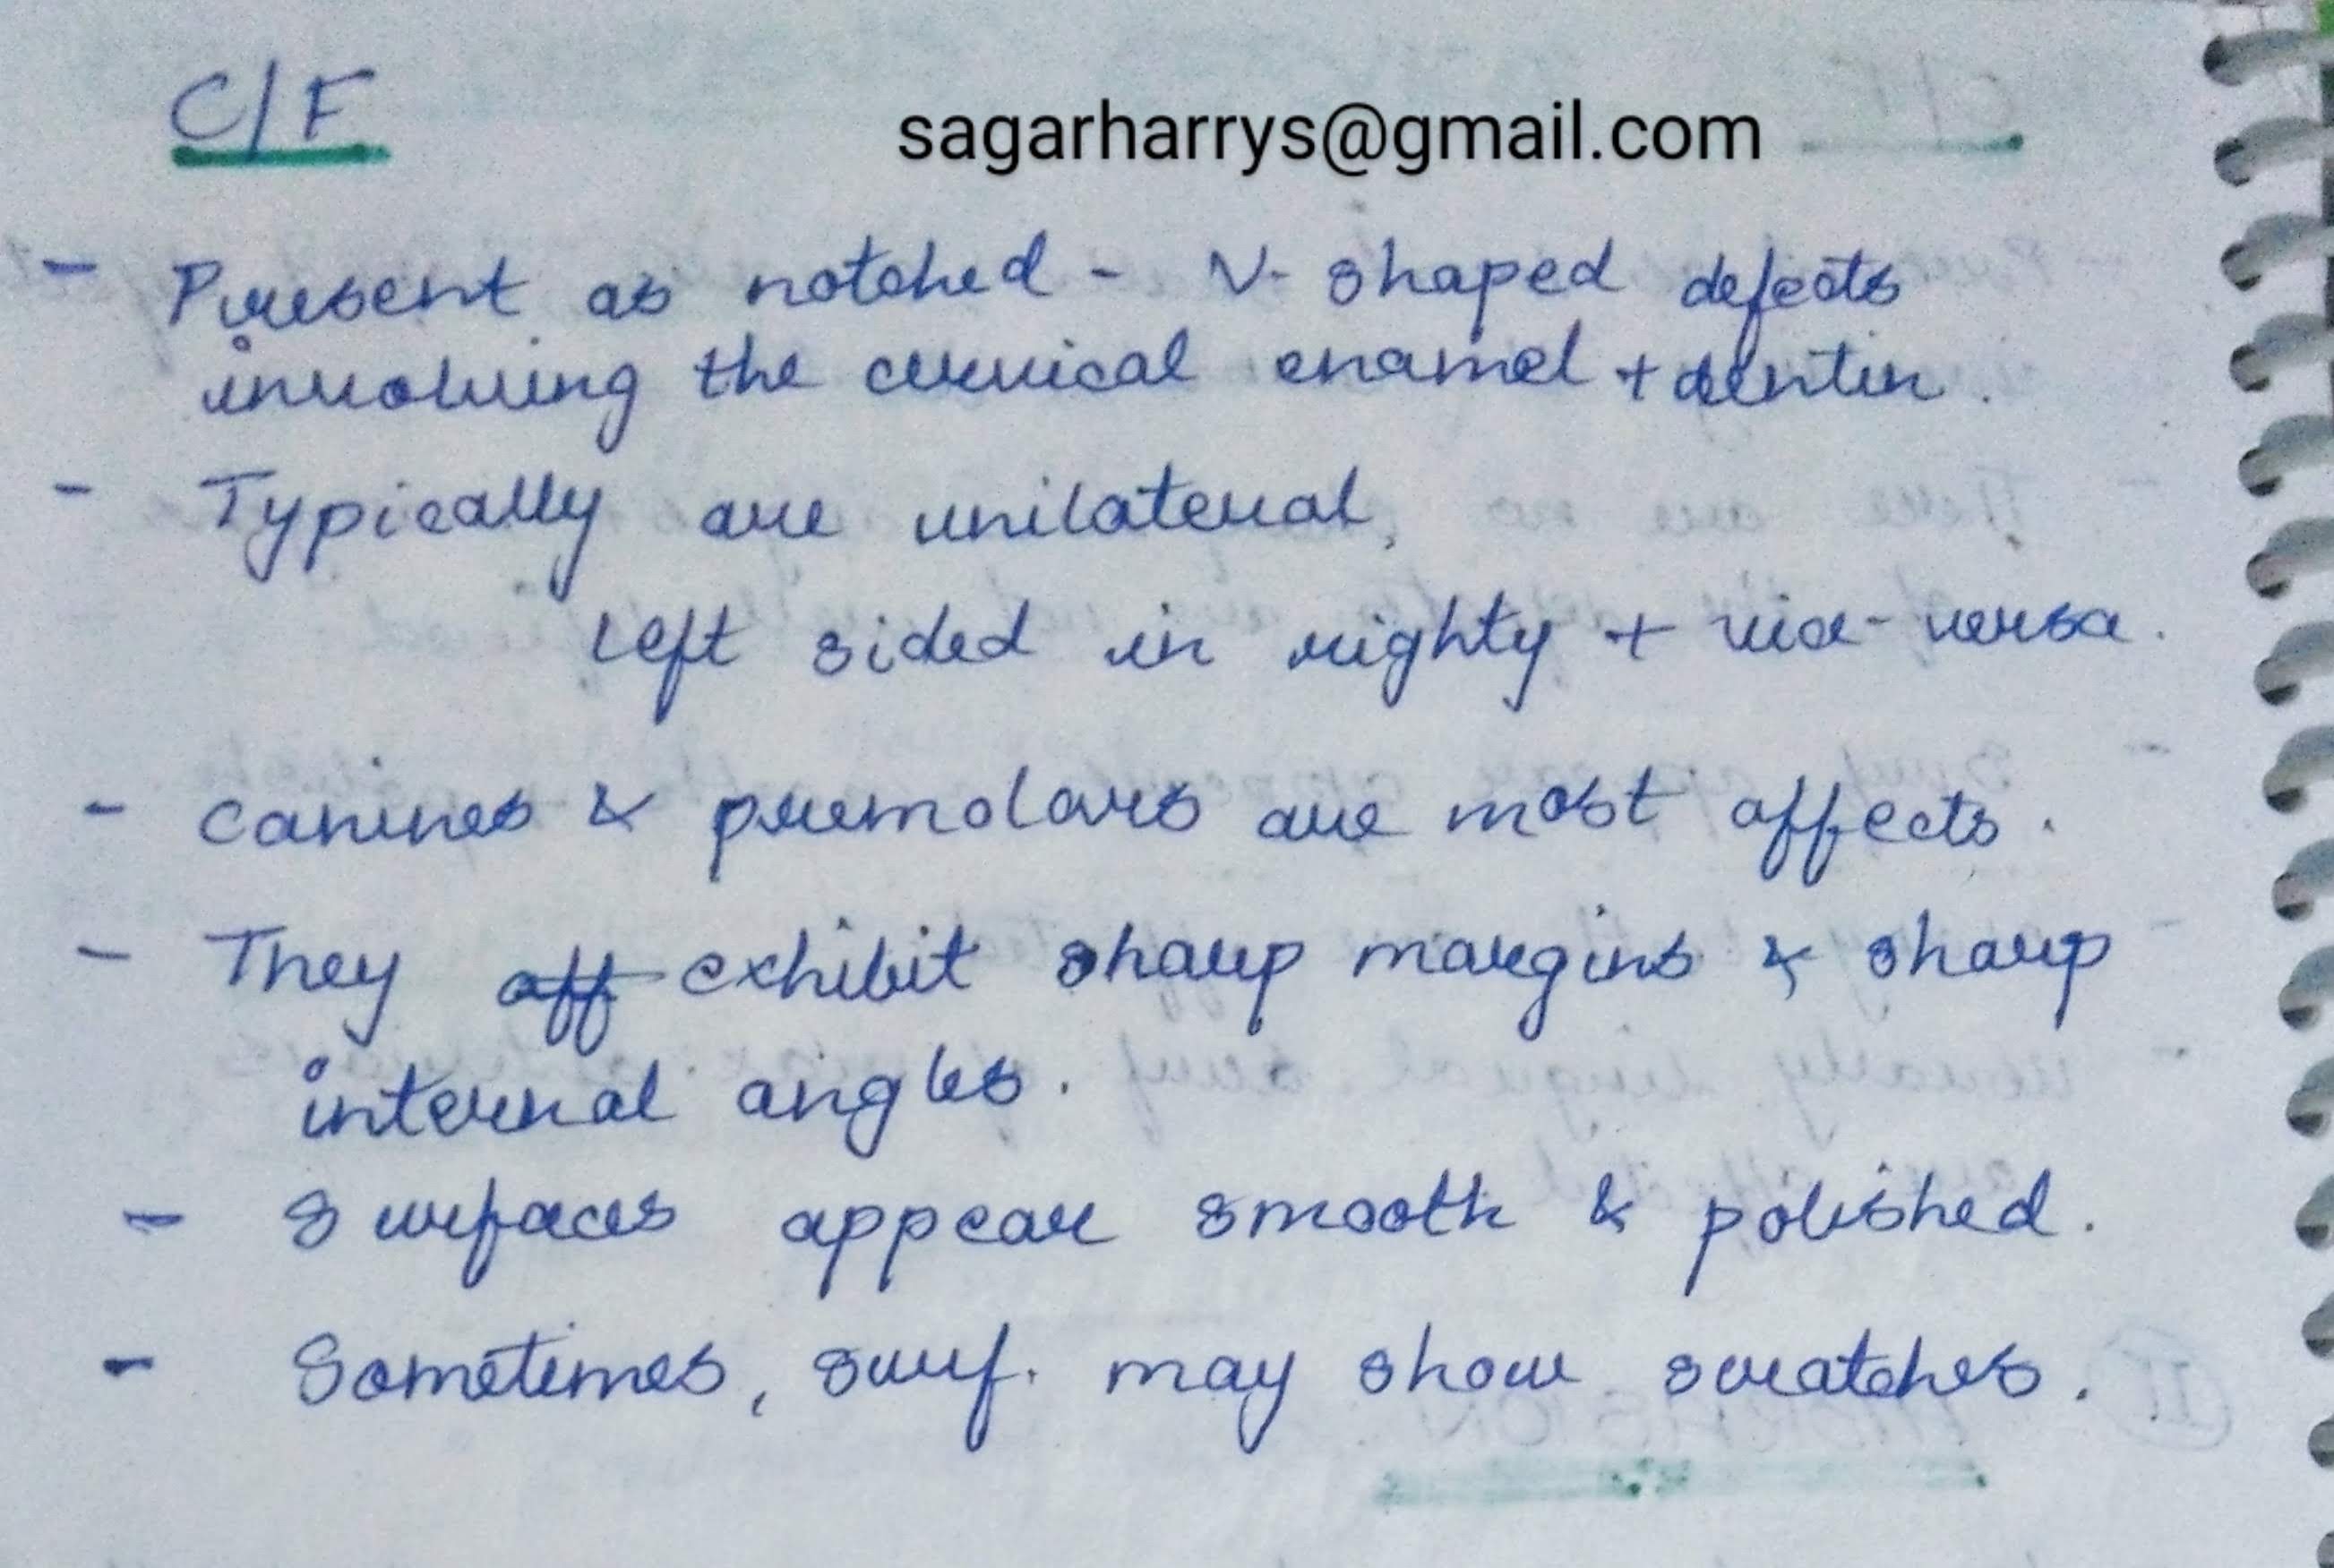 C/F
sagarharrys@gmail.com
- Present as notched - V- shaped defects
involving the cervical enamel + dentin.
- Typically are unilateral,
Left sided in righty + vice-versa.
- canines & premolars are most affects.
- They aff exhibit sharp margins & sharp
internal angles.
- Surfaces appear smooth & polished.
- Sometimes, surf. may show scratches.